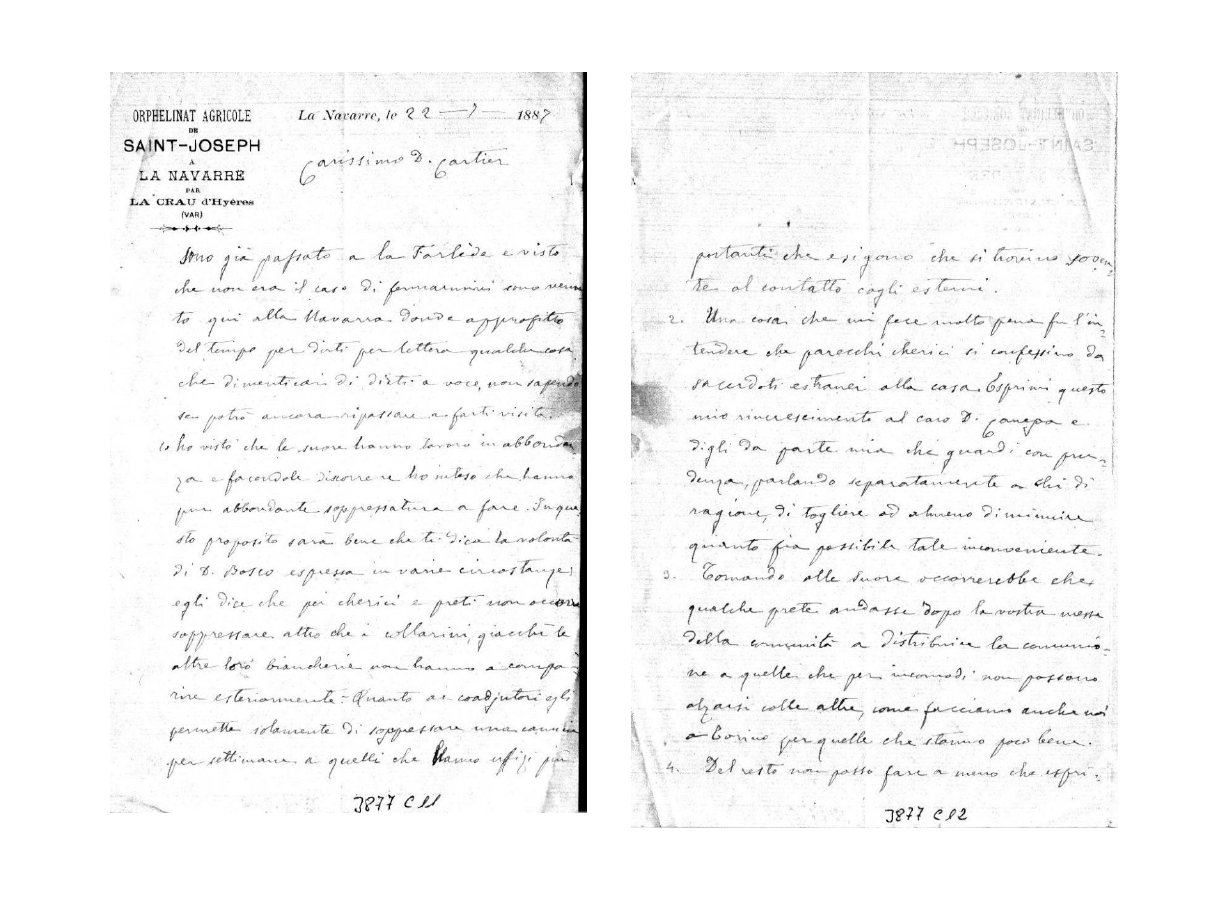 ORPHELINAT AGRICOLE
DE
SAINT-JOSEPH
À
LA NAVARRE
PAR
LA CRAU d'Hyères
(VAR)
La Navarre, le 22 — 7 — 1887
Carissimo D. Cartier
Sono già passato a la Farlède e visto
che non era il caso di fermarmivi sono venu
to qui alla Navarra donde approfitto
del tempo per dirti per lettera qualche cosa
che dimenticai di dirti a voce, non sapendo
se potrò ancora ripassare a farti visita.
1o ho visto che le suore hanno lavoro in abbondan
za e facendole discorrere ho inteso che hanno
pur abbondante soppressatura a fare. In que
sto proposito sarà bene che ti dica la volontà
di D. Bosco espressa in varie circostanze;
egli dice che pei cherici e preti non occorre
soppressare altro che i collarini, giacchè le
altre loro biancherie non hanno a compa
rire esteriormente. Quanto ai coadjutori egli
permette solamente di soppressare una camicia
per settimana a quelli che hanno uffizi più
J877 C 11
portanti che esigono che si trovino soven
tes al contatto cogli esterni.
2. Una cosa che mi fece molto pena fu l'in-
tendere che parecchi cherici si confessino da
sacerdoti estranei alla casa. Esprimi questo
mio rincrescimento al caro D. Canepa e
digli da parte mia che guardi con pru-
denza, parlando separatamente a chi di
ragione, di togliere od almeno diminuire
quanto fia possibile tale inconveniente.
3. Tornando alle suore occorrerebbe che
qualche prete andasse dopo la vostra messa
della comunità a distribuire la comunio-
ne a quelle che per incomodi non possono
alzarsi colle altre, come facciamo anche noi
a Torino per quelle che stanno poco bene.
4. Del resto non posso fare a meno che espri-
J877 C 12